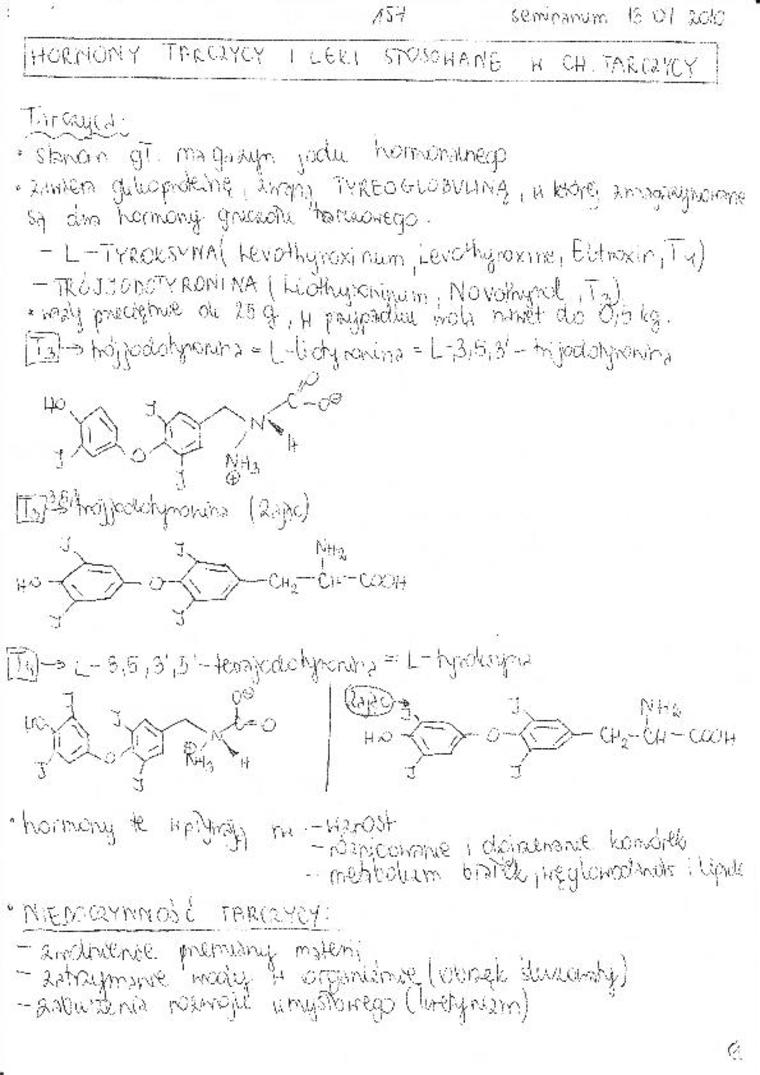 157 seminarium 15 01 2010
HORMONY TARCZYCY I LEKI STOSOWANE W CH. TARCZYCY
Tarczyca:
• stanowi gł. magazyn jodu hormonalnego
• zawiera glikoproteinę, zwaną TYREOGLOBULINĄ, w której zmagazynowane
są dwa hormony gruczołu tarczowego.
- L-TYROKSYNA (Levothyroxinum, Levothyroxine, Eltroxin, T4)
- TRÓJJODOTYRONINA (Liothyroninum, Novothyral, T3)
• waży przeciętnie ok 25 g, w przypadku wola nawet do 0,5 kg.
T3 → trójjodotyronina = L-liotyronina = L-3,5,3' - trijodotyronina
HO J O J J N C O O⊖ H NH3 ⊕
T3 → trójjodotyronina (Zając)
HO J J O J J CH2 - CH - COOH NH2
T4 → L-3,5,3',5' - tetrajodotyronina = L-tyroksyna
HO J J O J J N C O⊖ O H NH3 ⊕
Zając → HO J J O J J CH2 - CH - COOH NH2
• hormony te wpływają na: - wzrost
- różnicowanie i dojrzewanie komórek
- metabolizm białek, węglowodanów i lipidów
• NIEDOCZYNNOŚĆ TARCZYCY:
- zmniejszenie przemiany materii
- zatrzymanie wody w organizmie (obrzęk śluzowaty)
- zaburzenia rozwoju umysłowego (kretynizm)